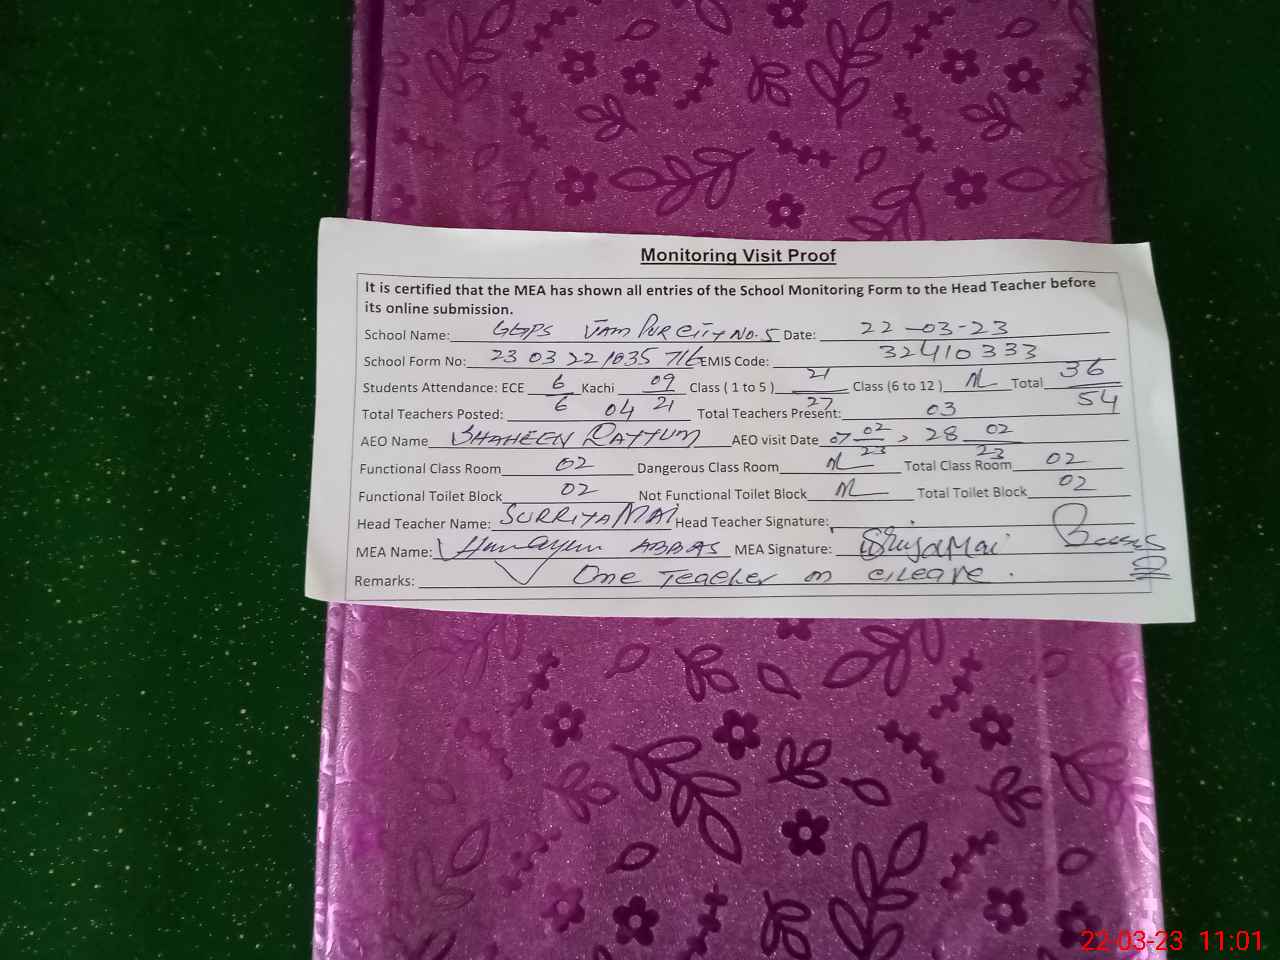 Monitoring Visit Proof
It is certified that the MEA has shown all entries of the School Monitoring Form to the Head Teacher before
its online submission.
School Name: GGPS JAM PUR CITY NO. 5 Date: 22-03-23
School Form No: 23 03 22 1035 716 EMIS Code: 32410333
Students Attendance: ECE 6/6 Kachi 09/21 Class ( 1 to 5 ) 21/27 Class (6 to 12 ) NL Total 36/54
Total Teachers Posted: 04 Total Teachers Present: 03
AEO Name SHAHEEN AEO visit Date 07 02/23, 28 02/23
Functional Class Room 02 Dangerous Class Room NL Total Class Room 02
Functional Toilet Block 02 Not Functional Toilet Block NL Total Toilet Block 02
Head Teacher Name: SURRIYA MAI Head Teacher Signature:
MEA Name: Humayun ABBAS MEA Signature:
Remarks: One Teacher on c/Leave.
22-03-23 11:01